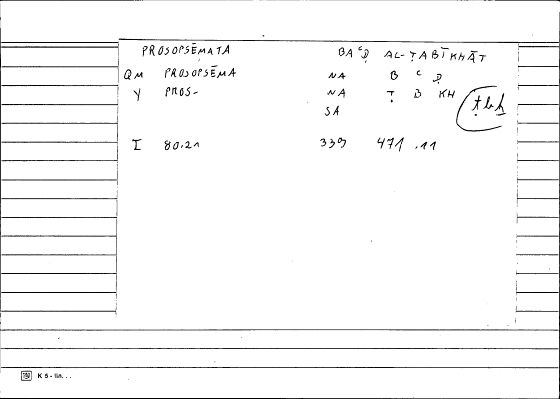 PROSOPSĒMATA BAʿḌ AL-ṬABĪKHĀT
QM PROSOPSĒMA NA B ʿ Ḍ
Y PROS- NA Ṭ B KH ṭbḫ
SA
I 80.21 339 471.11
K 5 - lin. . .